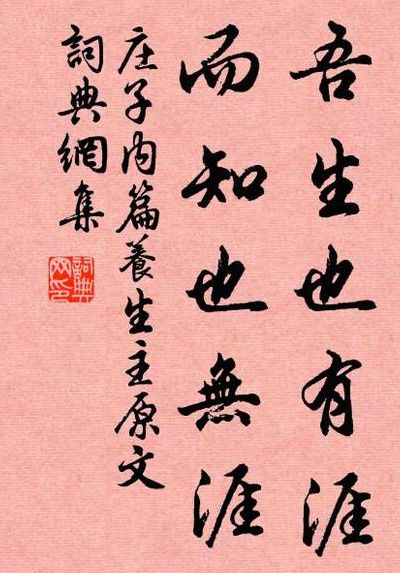 吾生也有涯
而知也無涯
庄子内篇養生主原文
詞典網集
詞典网印